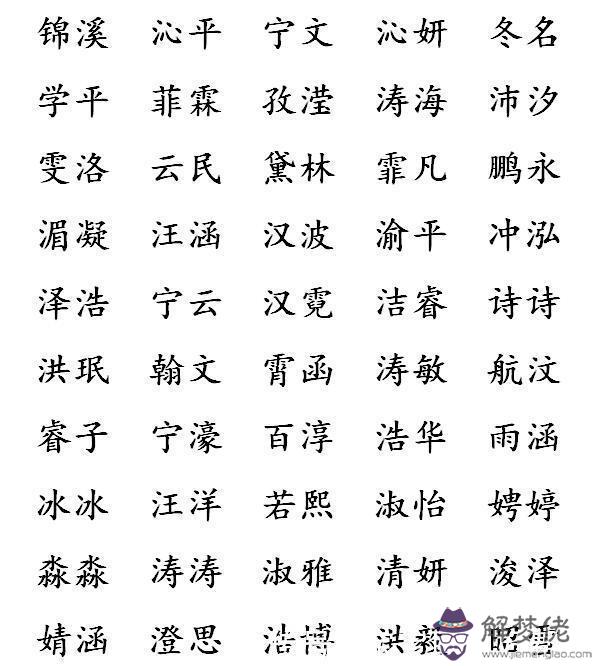 锦溪 沁平 宁文 沁妍 冬名
学平 菲霖 孜滢 涛海 沛汐
雯洛 云民 黛林 霏凡 鹏永
湄凝 汪涵 汉波 渝平 冲泓
泽浩 宁云 汉霓 洁睿 诗诗
洪珉 翰文 霄函 涛敏 航汶
睿子 宁濠 百淳 浩华 雨涵
冰冰 汪洋 若熙 淑怡 娉婷
淼淼 涛涛 淑雅 清妍 浚泽
婧涵 澄思 浩博 洪毅 昭
解梦佬
www.jiemenglao.com